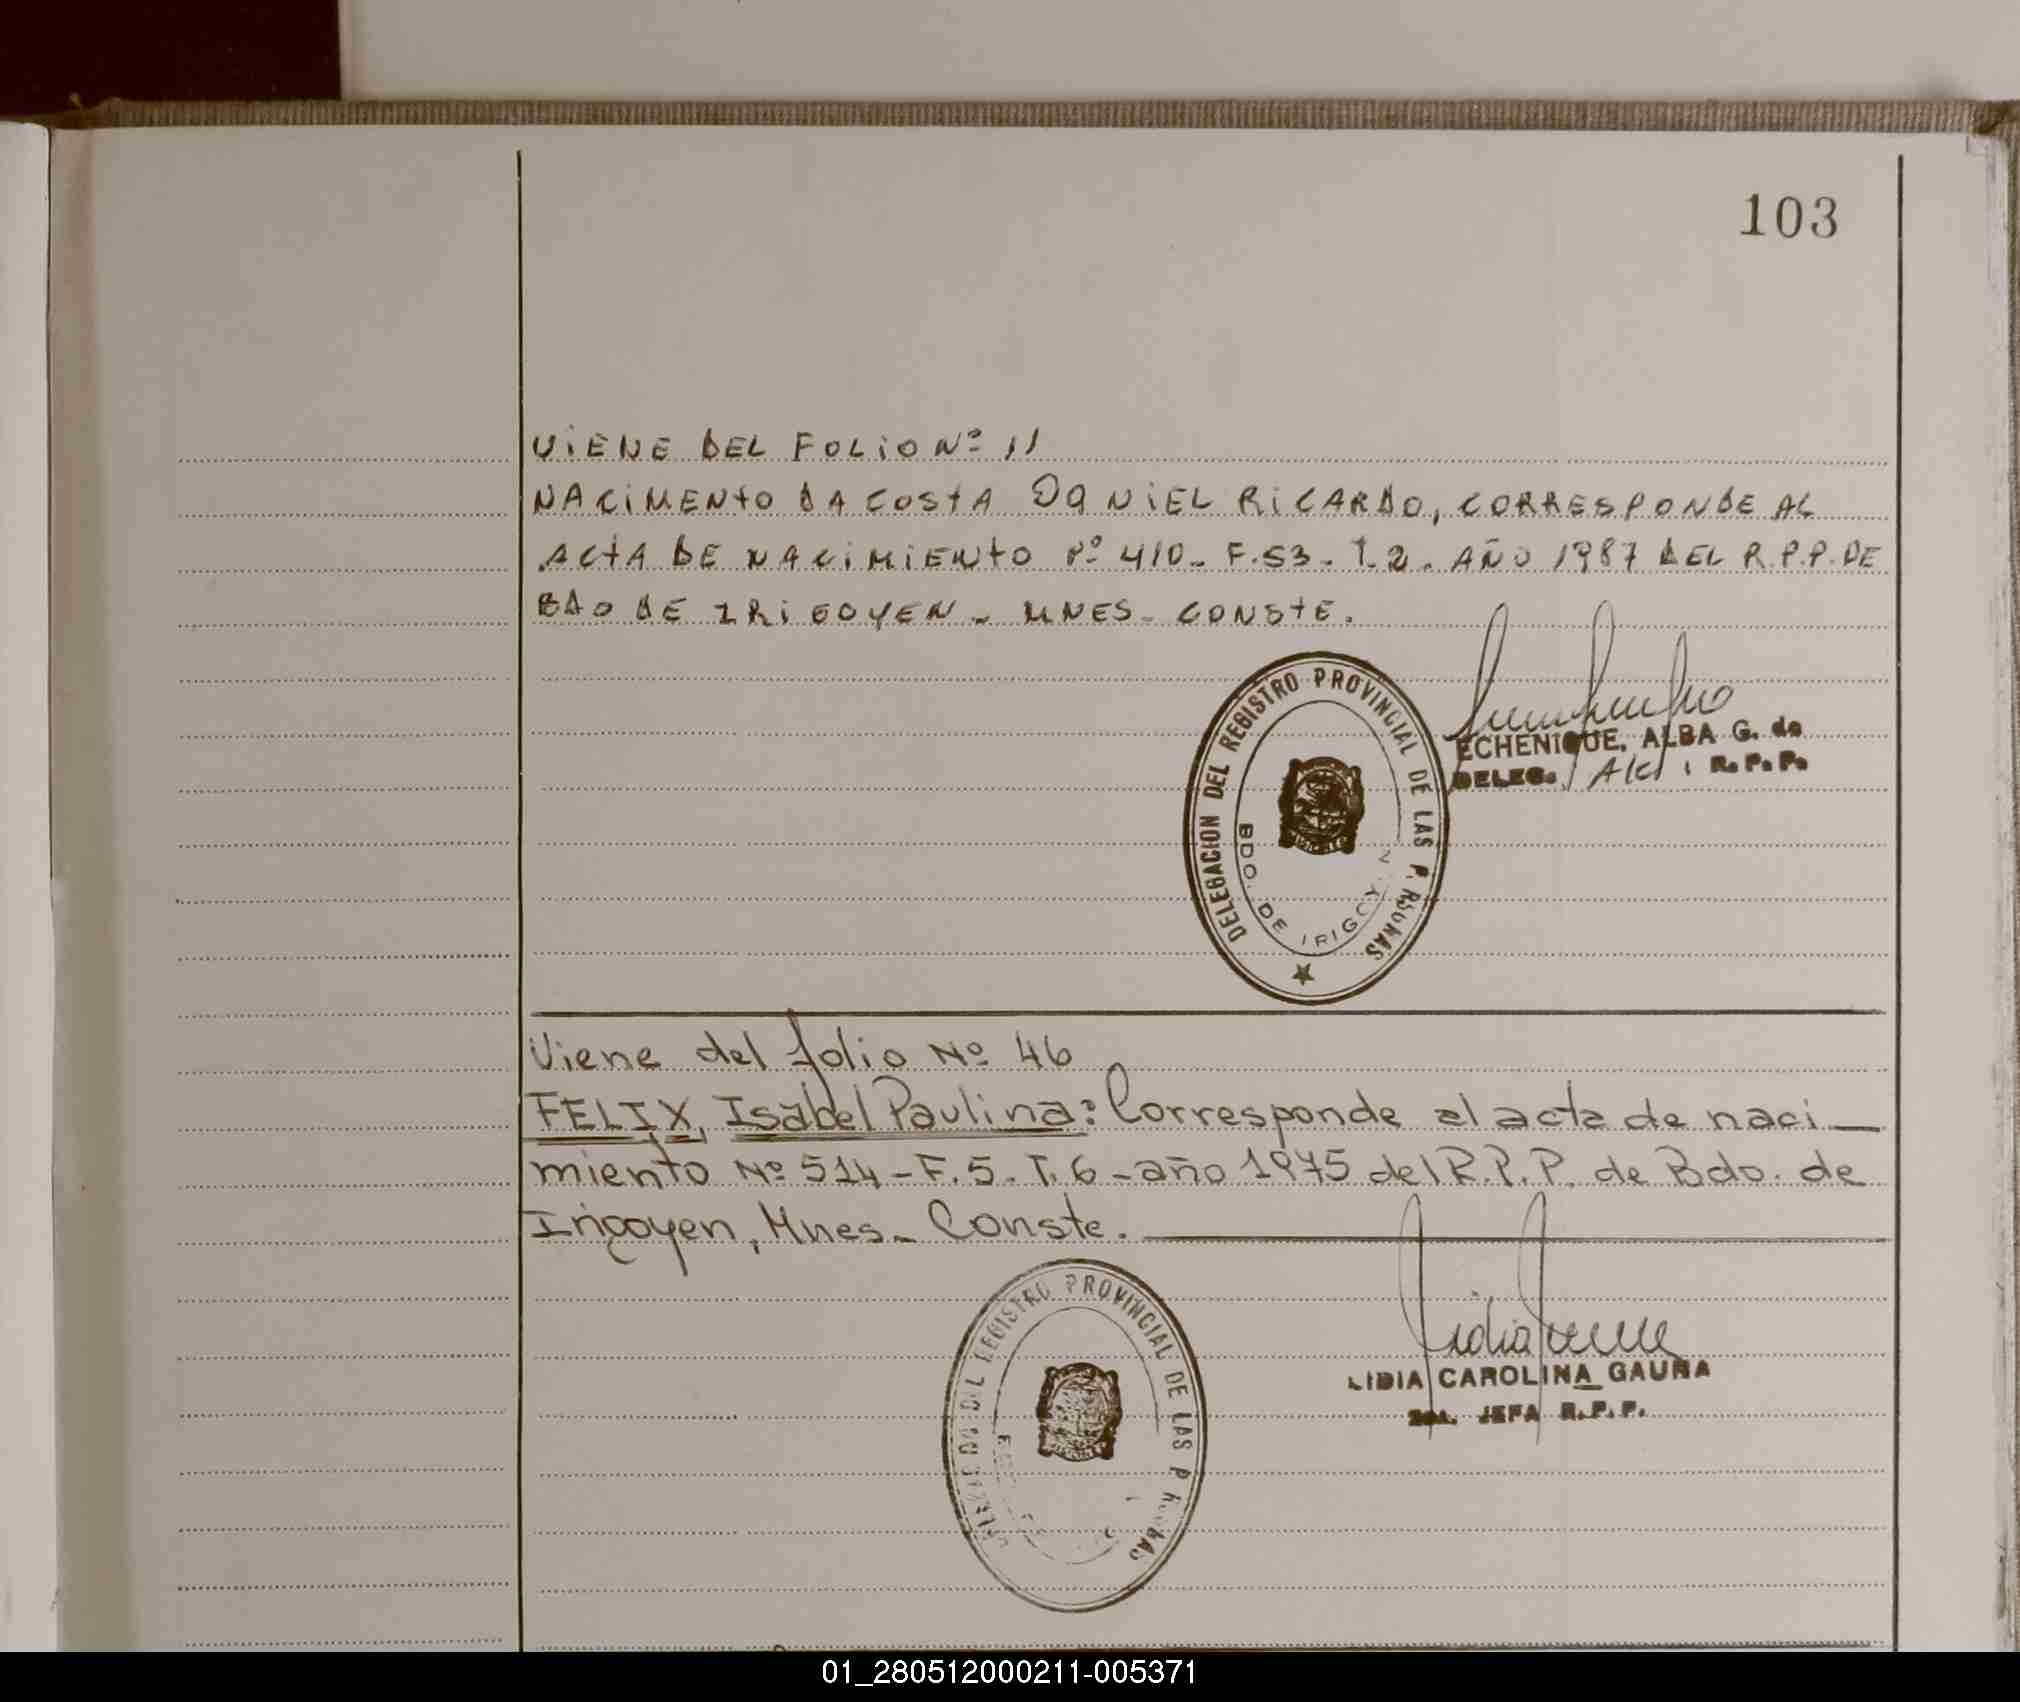 103
VIENE DEL FOLIO Nº 11
NACIMENTO DA COSTA DANIEL RICARDO, CORRESPONDE AL
ACTA DE NACIMIENTO Nº 410- F.53- T.2. AÑO 1987 DEL R.P.P. DE
BDO DE IRIGOYEN - MNES- CONSTE.
DELEGACION DEL REGISTRO PROVINCIAL DE LAS P.RSONAS
BDO. DE IRIGOY
ECHENIQUE, ALBA G. de
DELEG. R.P.P.
Viene del folio Nº 46
FELIX, Isabel Paulina: Corresponde al acta de naci-
miento Nº 514-F.5-T.6-año 1975 del R.P.P. de Bdo. de
Irigoyen, Mnes- Conste.
REGISTRO PROVINCIAL DE LAS P
LIDIA CAROLINA GAUNA
JEFA R.P.P.
01_280512000211-005371